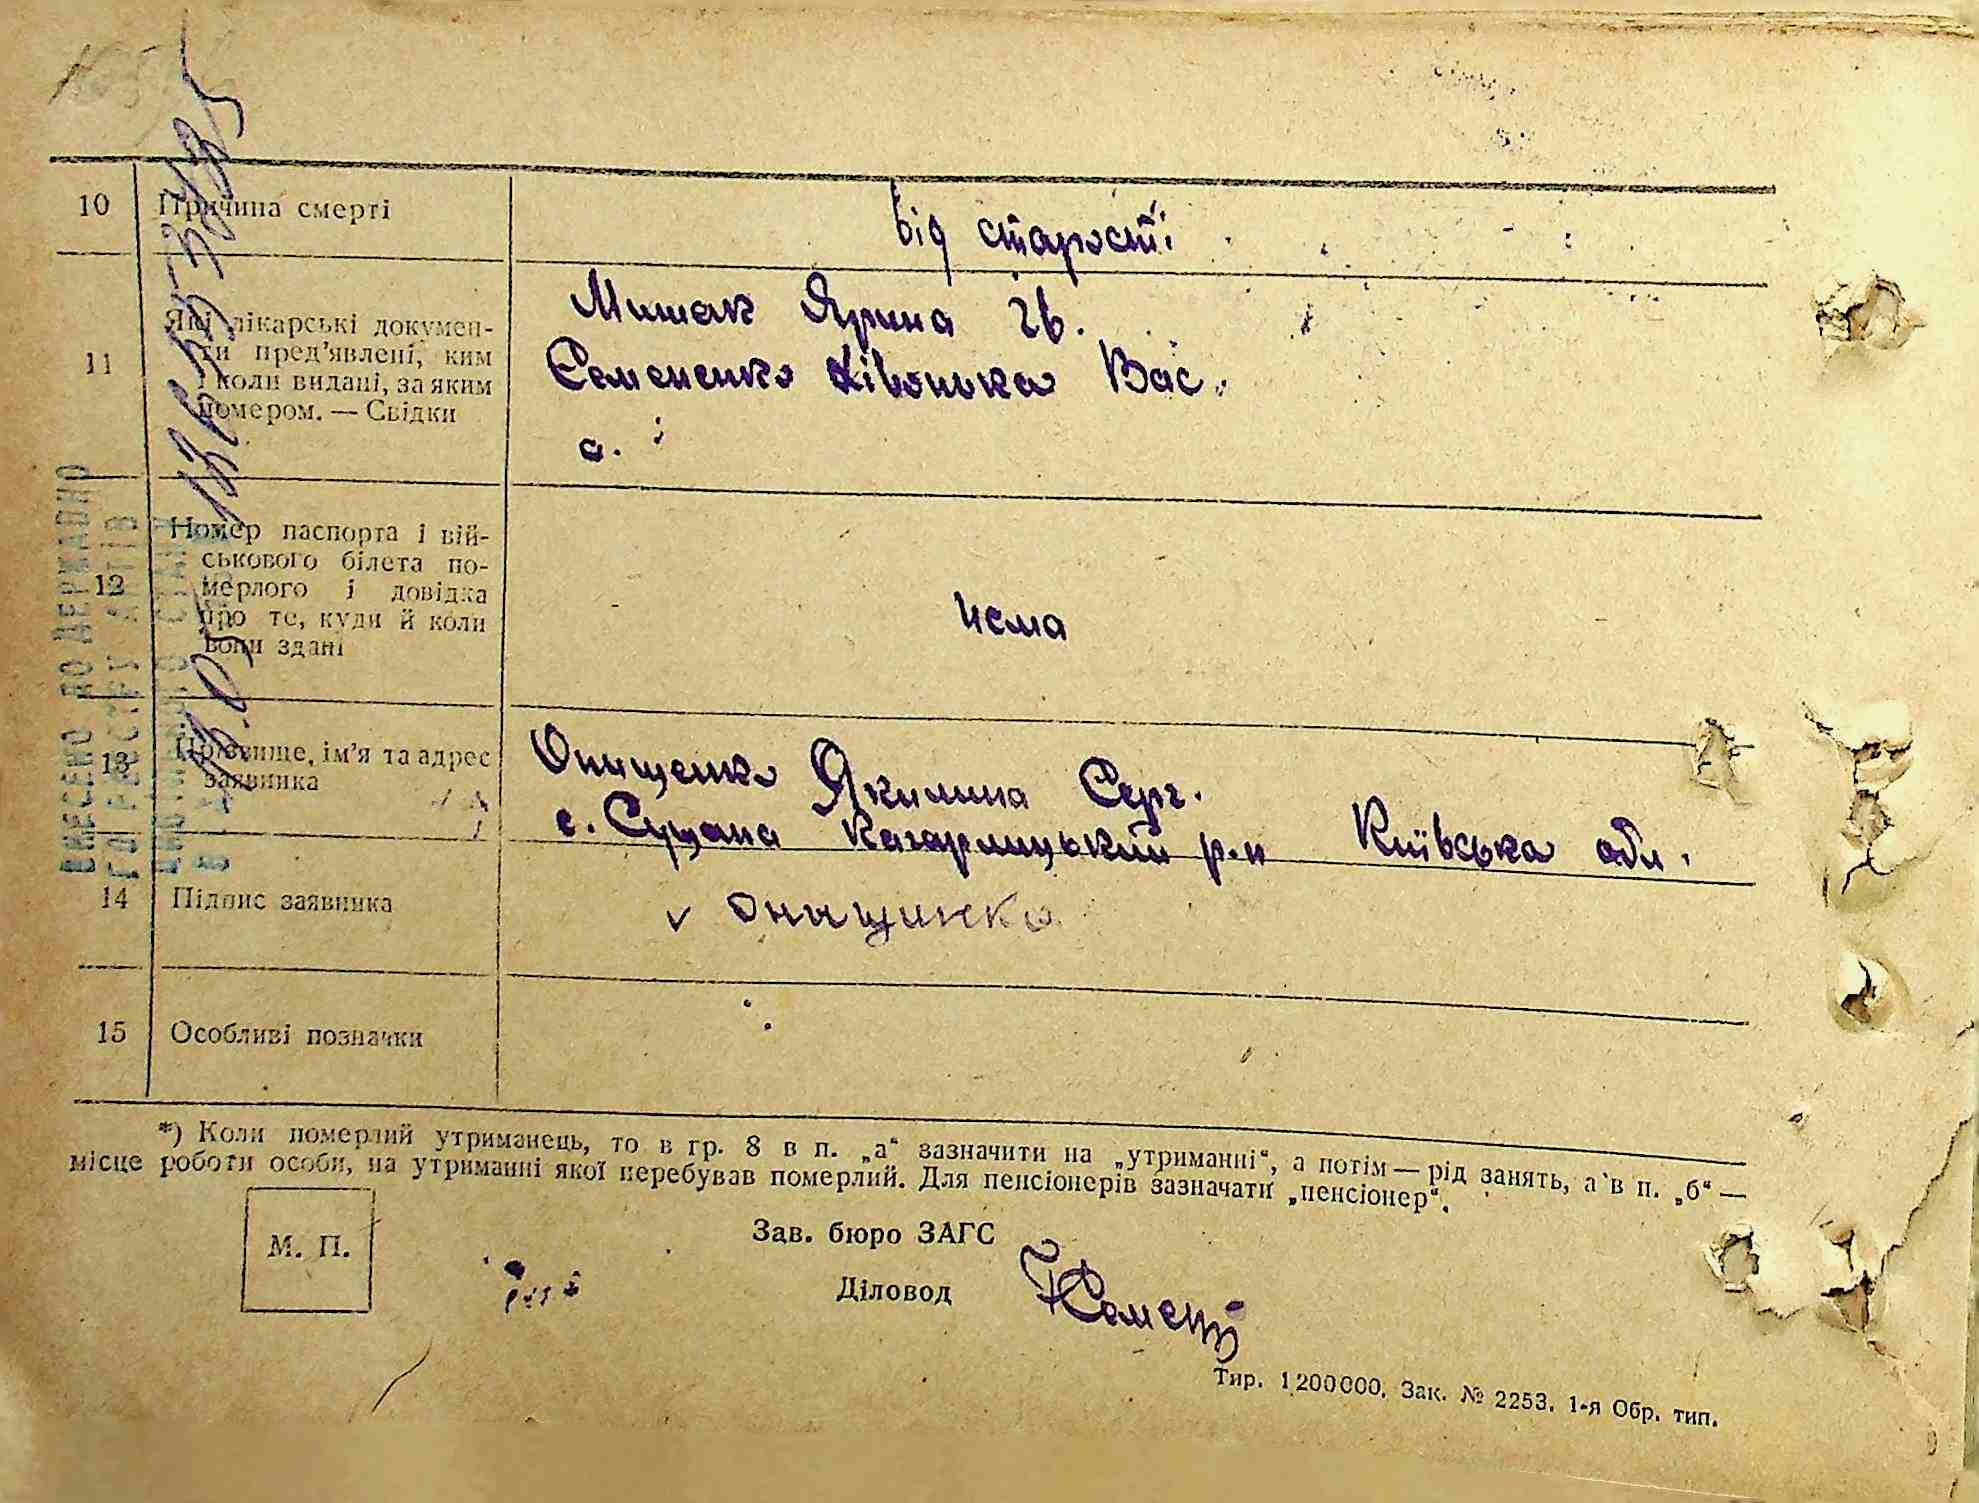 10 Причина смерті від старості
11 Які лікарські докумен-
ти пред'явлені, ким
і коли видані, за яким
номером. — Свідки
Мишак Ярина Ів.
Семененко Хівонька Вас.
а.
12 Номер паспорта і вій-
ськового білета по-
мерлого і довідка
про те, куди й коли
вони здані
нема
13 Прізвище, ім'я та адрес
заявника
Онищенко Якилина Серг.
с. Сущана Кагарлицький р-н Київська обл.
14 Підпис заявника v Онищинко
15 Особливі позначки
ВНЕСЕНО ДО ДЕРЖАВНО
ГО РЕЄСТРУ АКТІВ
*) Коли померлий утриманець, то в гр. 8 в п. „а“ зазначити на „утриманні“, а потім — рід занять, а в п. „б“ —
місце роботи особи, на утриманні якої перебував померлий. Для пенсіонерів зазначати „пенсіонер“.
М. П.
Зав. бюро ЗАГС
Діловод
Тир. 1200000. Зак. № 2253. 1-я Обр. тип.